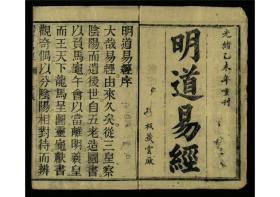 光緒乙未年重刊
明道易經
板藏雲厰
明道易經序
大哉易經由來久矣從三皇察
陰陽而遺後世自五老造圖書
以負馬龜午會以當離明羲皇
而王天下龍馬呈圖靈龜獻書
觀奇偶以分陰陽相對待而辨